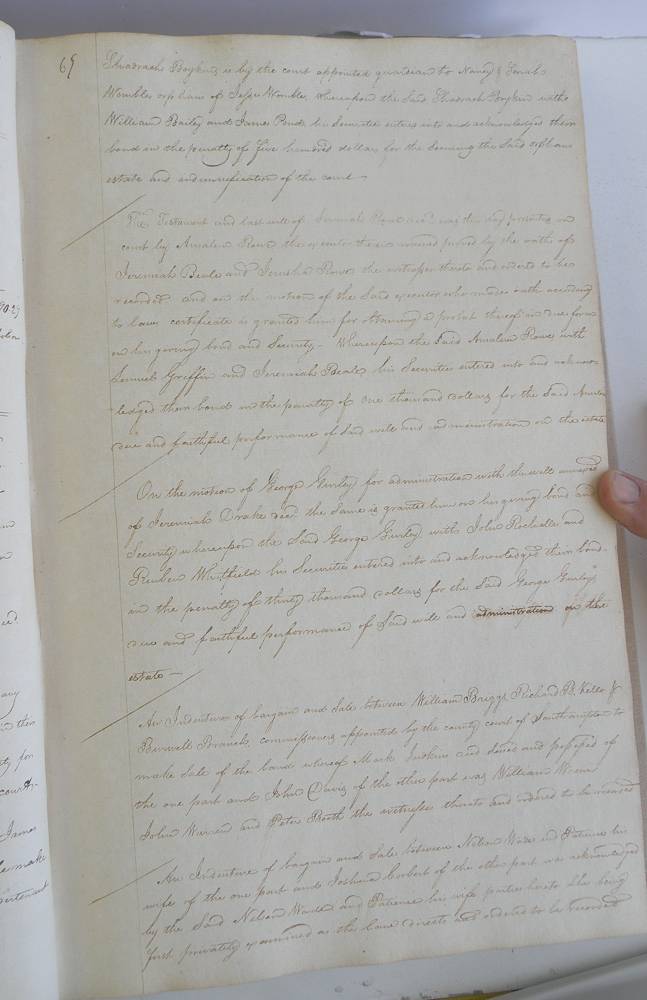 69
Shadrach Boykin is by the court appointed guardian to Nancy & Sarah
Womble orphans of Jesse Womble, whereupon the said Shadrach Boykin with
William Bailey and James Pond his securities enters into and acknowledges them
bond in the penalty of five hundred dollars for the securing the said orphans
estate and indemnification of the court —
The Testament and last will of Rowe decd was this day presented in
court by Amalen Rowe the executor therein named proved by the oaths of
Jeremiah Beale and Jerusha Rowe the witnesses thereto and ordered to be
recorded and on the motion of the said executor who made oath according
to law certificate is granted him for obtaining a probat thereof in due form
on his giving bond and Security — Whereupon the said Amalen Rowe with
Samuel Griffin and Jeremiah Beale his Securities entered into and acknow
ledged them bond in the penalty of One thousand dollars for the said
due and faithful performance of said will and administration on the estate
On the motion of George Gurley for administration with the will annexed
of Jeremiah Drake decd the same is granted him on his giving bond and
Security whereupon the said George Gurley with John Rochelle and
Reuben Whitfield his Securities entered into and acknowledged them bond
in the penalty of thirty thousand dollars for the said George Gurley's
due and faithful performance of said will and administration on the
estate —
An Indenture of bargain and sale between William Briggs Richard B. Kello &
Burwell Branch, commissioners appointed by the county court of Southampton to
make sale of the land whereof Mark decd died and possessed of
the one part and John Davis of the other part was William
John Warren and Peter Booth the witnesses thereto and ordered to be recorded
An Indenture of bargain and sale between Nelson Wade and Patience his
wife of the one part and Joshua Corbert of the other part was acknowledged
by the said Nelson Wade and Patience his wife parties hereto she being
first privately examined as the law directs and ordered to be recorded